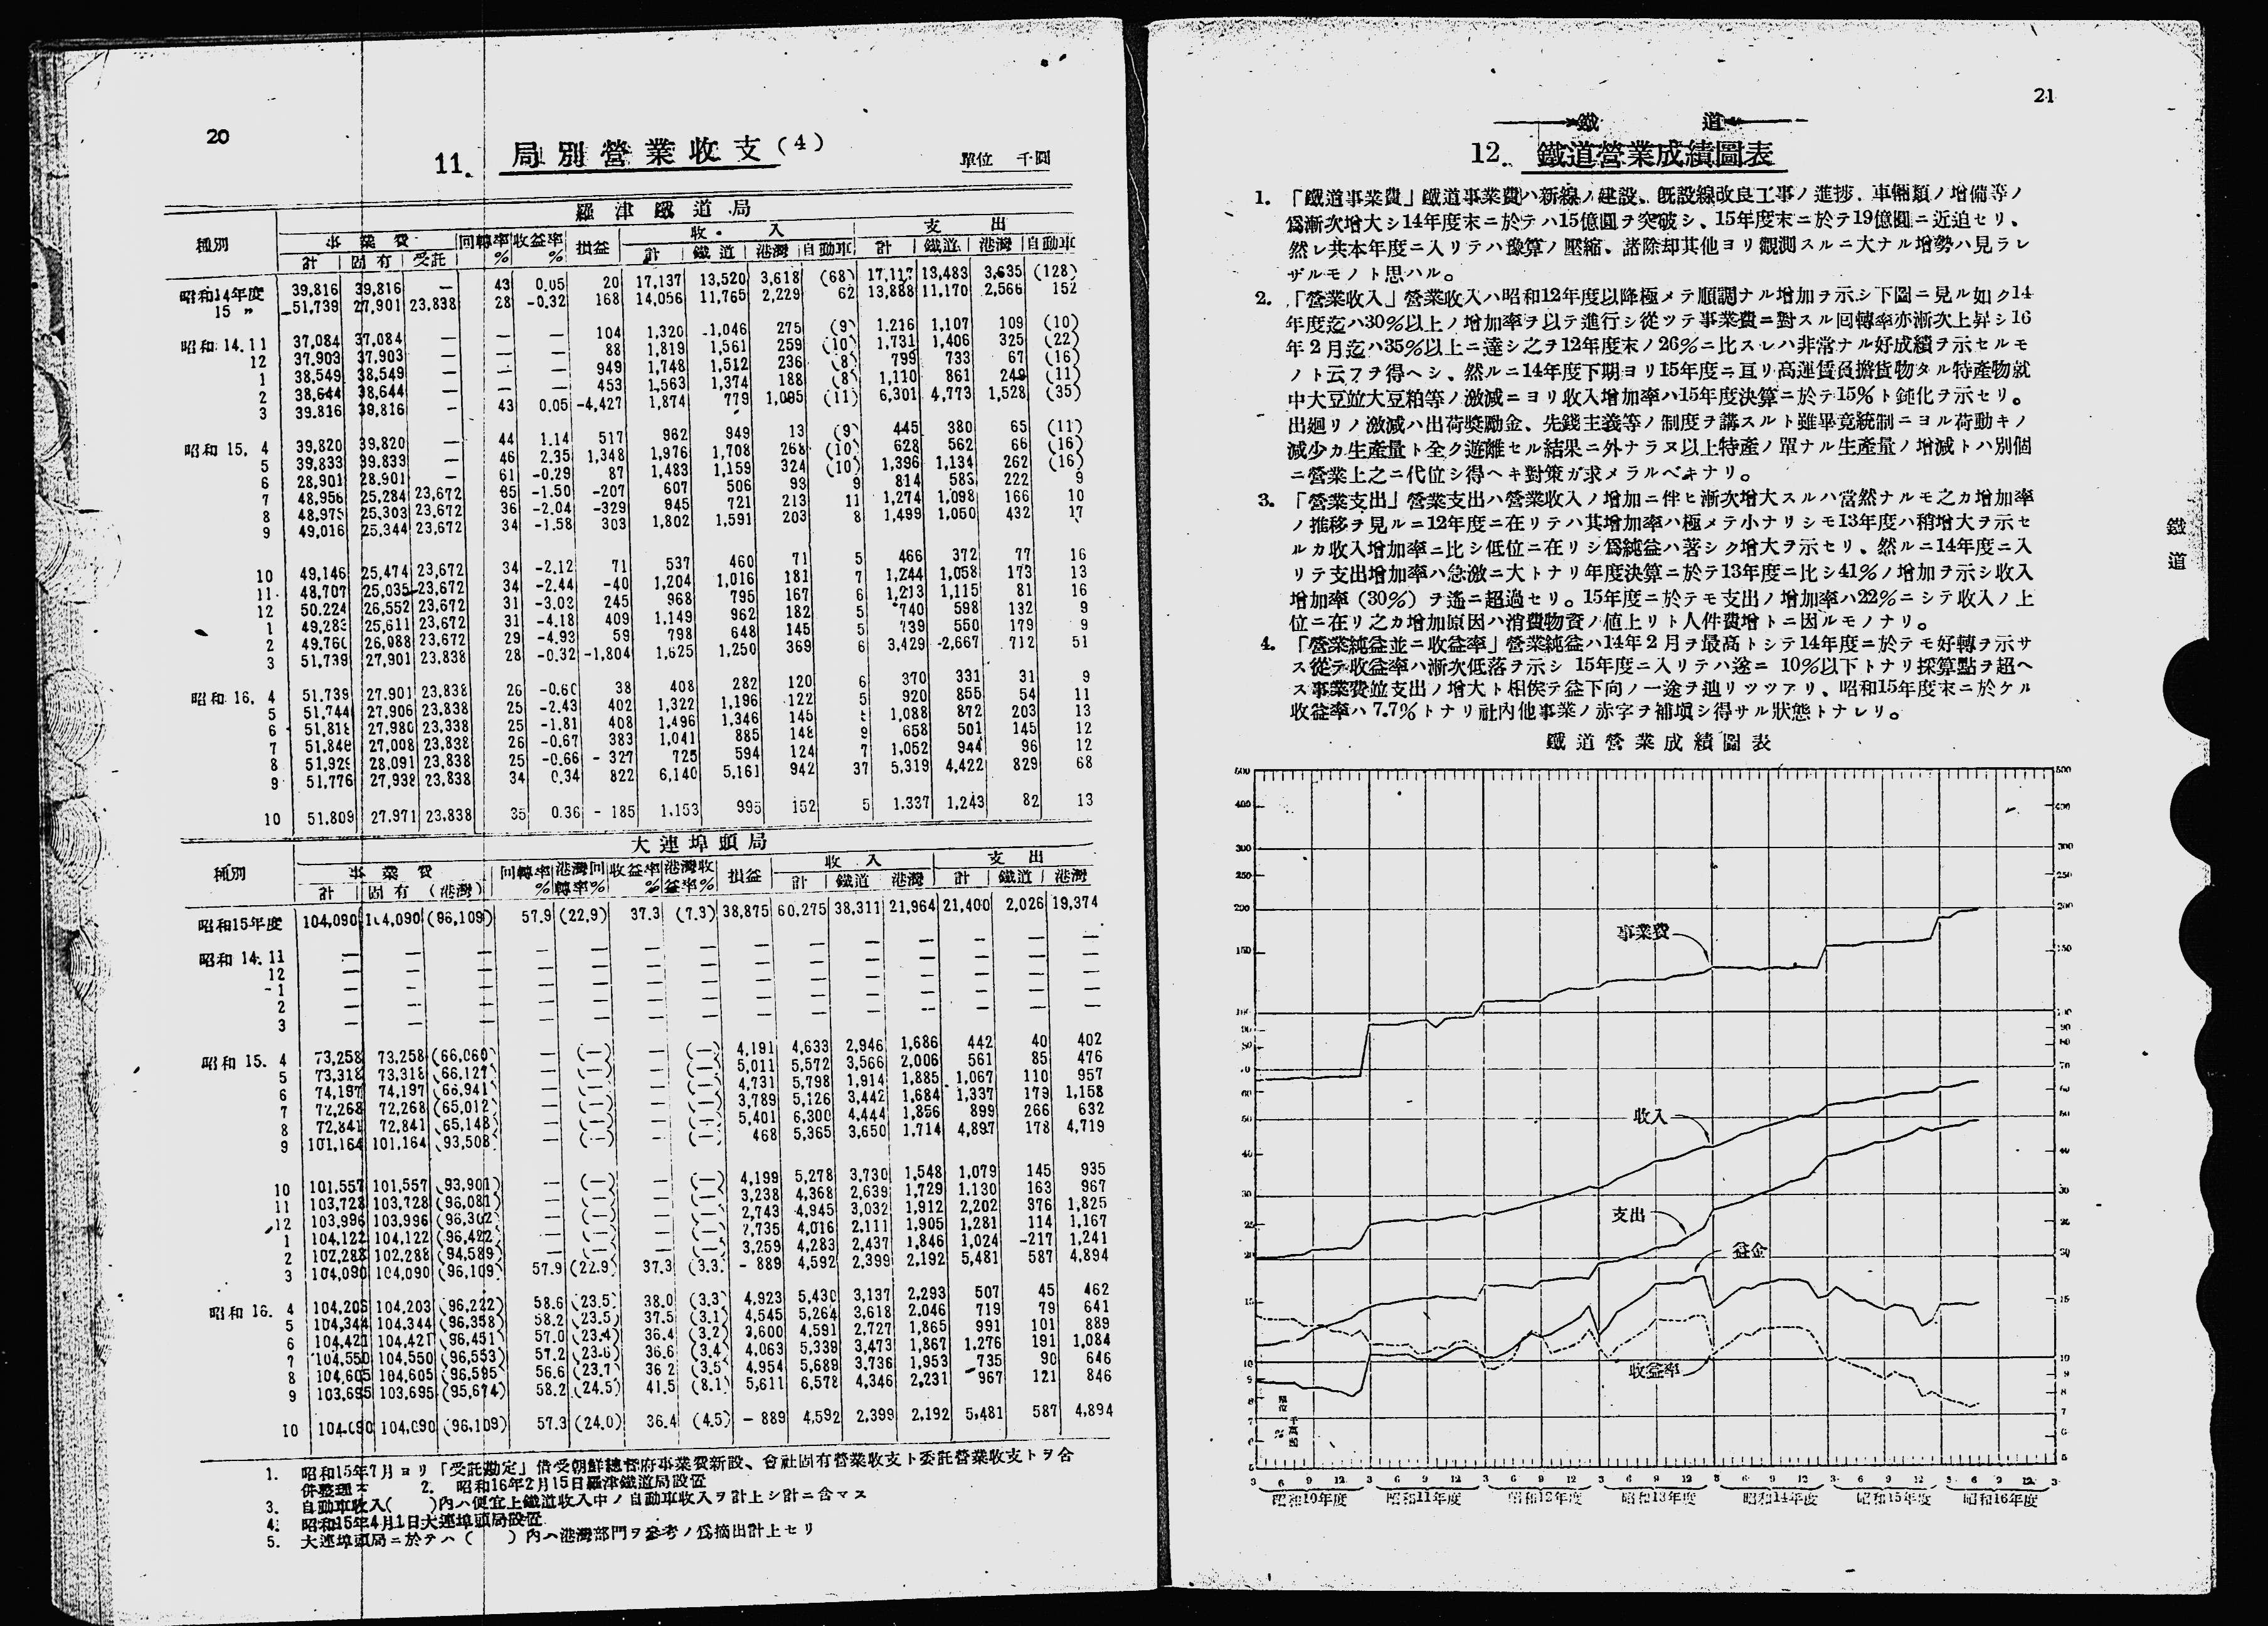 20
11. 局別營業收支(4)
單位 千圓
羅津鐵道局
種別 事業費 回轉率% 收益率% 損益 收入 支出
計 固有 受託 計 鐵道 港灣 自動車 計 鐵道 港灣 自動車
昭和14年度 39,816 39,816 — 43 0.05 20 17,137 13,520 3,618 (68) 17,117 13,483 3,635 (128)
15 〃 51,739 27,901 23,838 28 -0.32 168 14,056 11,765 2,229 62 13,888 11,170 2,566 152
昭和14.11 37,084 37,084 — — — 104 1,320 1,046 275 (9) 1,216 1,107 109 (10)
12 37,903 37,903 — — — 88 1,819 1,561 259 (10) 1,731 1,406 325 (22)
1 38,549 38,549 — — — 949 1,748 1,512 236 (8) 799 733 67 (16)
2 38,644 38,644 — — — 453 1,563 1,374 188 (8) 1,110 861 249 (11)
3 39,816 39,816 — 43 0.05 -4,427 1,874 779 1,095 (11) 6,301 4,773 1,528 (35)
昭和15. 4 39,820 39,820 — 44 1.14 517 962 949 13 (9) 445 380 65 (11)
5 39,833 39,833 — 46 2.35 1,348 1,976 1,708 268 (10) 628 562 66 (16)
6 28,901 28,901 — 61 -0.29 87 1,483 1,159 324 (10) 1,396 1,134 262 (16)
7 48,956 25,284 23,672 35 -1.50 -207 607 506 93 9 814 583 222 9
8 48,975 25,303 23,672 36 -2.04 -329 945 721 213 11 1,274 1,098 166 10
9 49,016 25,344 23,672 34 -1.58 303 1,802 1,591 203 8 1,499 1,050 432 17
10 49,146 25,474 23,672 34 -2.12 71 537 460 71 5 466 372 77 16
11 48,707 25,035 23,672 34 -2.44 -40 1,204 1,016 181 7 1,244 1,058 173 13
12 50,224 26,552 23,672 31 -3.02 245 968 795 167 6 1,213 1,115 81 16
1 49,283 25,611 23,672 31 -4.18 409 1,149 962 182 5 740 598 132 9
2 49,760 26,088 23,672 29 -4.93 59 798 648 145 5 739 550 179 9
3 51,739 27,901 23,838 28 -0.32 -1,804 1,625 1,250 369 6 3,429 2,667 712 51
昭和16. 4 51,739 27,901 23,838 26 -0.60 38 408 282 120 6 370 331 31 9
5 51,744 27,906 23,838 25 -2.43 402 1,322 1,196 122 5 920 855 54 11
6 51,818 27,980 23,338 25 -1.81 408 1,496 1,346 145 5 1,088 872 203 13
7 51,846 27,008 23,838 26 -0.67 383 1,041 885 148 9 658 501 145 12
8 51,929 28,091 23,838 25 -0.66 - 327 725 594 124 7 1,052 944 96 12
9 51,776 27,938 23,838 34 0.34 822 6,140 5,161 942 37 5,319 4,422 829 68
10 51,809 27,971 23,838 35 0.36 - 185 1,153 995 152 5 1,337 1,243 82 13
大連埠頭局
種別 事業費 回轉率% 港灣回轉率% 收益率% 港灣收益率% 損益 收入 支出
計 固有 (港灣) 計 鐵道 港灣 計 鐵道 港灣
昭和15年度 104,090 104,090 (96,109) 57.9 (22.9) 37.3 (7.3) 38,875 60,275 38,311 21,964 21,400 2,026 19,374
昭和14.11 — — — — — — — — — — — — — —
12 — — — — — — — — — — — — — —
1 — — — — — — — — — — — — — —
2 — — — — — — — — — — — — — —
3 — — — — — — — — — — — — — —
昭和15. 4 73,258 73,258 (66,060) — (—) — (—) 4,191 4,633 2,946 1,686 442 40 402
5 73,318 73,318 (66,127) — (—) — (—) 5,011 5,572 3,566 2,006 561 85 476
6 74,197 74,197 (66,941) — (—) — (—) 4,731 5,798 1,914 1,885 1,067 110 957
7 72,268 72,268 (65,012) — (—) — (—) 3,789 5,126 3,442 1,684 1,337 179 1,158
8 72,841 72,841 (65,148) — (—) — (—) 5,401 6,300 4,444 1,856 899 266 632
9 101,164 101,164 (93,508) — (—) — (—) 468 5,365 3,650 1,714 4,897 178 4,719
10 101,557 101,557 (93,901) — (—) — (—) 4,199 5,278 3,730 1,548 1,079 145 935
11 103,728 103,728 (96,081) — (—) — (—) 3,238 4,368 2,639 1,729 1,130 163 967
12 103,996 103,996 (96,302) — (—) — (—) 2,743 4,945 3,032 1,912 2,202 376 1,825
1 104,122 104,122 (96,422) — (—) — (—) 2,735 4,016 2,111 1,905 1,281 114 1,167
2 102,288 102,288 (94,589) — (—) — (—) 3,259 4,283 2,437 1,846 1,024 -217 1,241
3 104,090 104,090 (96,109) 57.9 (22.9) 37.3 (3.3) - 889 4,592 2,399 2,192 5,481 587 4,894
昭和16. 4 104,203 104,203 (96,222) 58.6 (23.5) 38.0 (3.3) 4,923 5,430 3,137 2,293 507 45 462
5 104,344 104,344 (96,358) 58.2 (23.5) 37.5 (3.1) 4,545 5,264 3,618 2,046 719 79 641
6 104,421 104,421 (96,451) 57.0 (23.4) 36.4 (3.2) 3,600 4,591 2,727 1,865 991 101 889
7 104,550 104,550 (96,553) 57.2 (23.6) 36.6 (3.4) 4,063 5,339 3,473 1,867 1,276 191 1,084
8 104,605 104,605 (96,595) 56.6 (23.7) 36.2 (3.5) 4,954 5,689 3,736 1,953 735 90 646
9 103,695 103,695 (95,674) 58.2 (24.5) 41.5 (8.1) 5,611 6,578 4,346 2,231 967 121 846
10 104,090 104,090 (96,109) 57.3 (24.0) 36.4 (4.5) - 889 4,592 2,399 2,192 5,481 587 4,894
1. 昭和15年7月ヨリ「受託勘定」借受朝鮮總督府事業費新設、會社固有營業收支ト委託營業收支トヲ合
併整理ス 2. 昭和16年2月15日羅津鐵道局設置
3. 自動車收入( )內ハ便宜上鐵道收入中ノ自動車收入ヲ計上シ計ニ含マス
4. 昭和15年4月1日大連埠頭局設置
5. 大連埠頭局ニ於テハ( )內ハ港灣部門ヲ參考ノ爲摘出計上セリ
21
鐵道
12. 鐵道營業成績圖表
1. 「鐵道事業費」鐵道事業費ハ新線ノ建設、旣設線改良工事ノ進捗、車輛類ノ增備等ノ
爲漸次增大シ14年度末ニ於テハ15億圓ヲ突破シ、15年度末ニ於テ19億圓ニ近迫セリ、
然レ共本年度ニ入リテハ豫算ノ壓縮、諸除却其他ヨリ觀測スルニ大ナル增勢ハ見ラレ
ザルモノト思ハル。
2. 「營業收入」營業收入ハ昭和12年度以降極メテ順調ナル增加ヲ示シ下圖ニ見ル如ク14
年度迄ハ30%以上ノ增加率ヲ以テ進行シ從ツテ事業費ニ對スル回轉率亦漸次上昇シ16
年2月迄ハ35%以上ニ達シ之ヲ12年度末ノ26%ニ比スレハ非常ナル好成績ヲ示セルモ
ノト云フヲ得ヘシ、然ルニ14年度下期ヨリ15年度ニ亙リ高運賃負擔貨物タル特產物就
中大豆竝大豆粕等ノ激減ニヨリ收入增加率ハ15年度決算ニ於テ15%ト鈍化ヲ示セリ。
出廻リノ激減ハ出荷奬勵金、先錢主義等ノ制度ヲ講スルト雖畢竟統制ニヨル荷動キノ
減少カ生產量ト全ク遊離セル結果ニ外ナラヌ以上特產ノ單ナル生產量ノ增減トハ別個
ニ營業上之ニ代位シ得ヘキ對策ガ求メラルベキナリ。
3. 「營業支出」營業支出ハ營業收入ノ增加ニ伴ヒ漸次增大スルハ當然ナルモ之カ增加率
ノ推移ヲ見ルニ12年度ニ在リテハ其增加率ハ極メテ小ナリシモ13年度ハ稍增大ヲ示セ
ルカ收入增加率ニ比シ低位ニ在リシ爲純益ハ著シク增大ヲ示セリ、然ルニ14年度ニ入
リテ支出增加率ハ急激ニ大トナリ年度決算ニ於テ13年度ニ比シ41%ノ增加ヲ示シ收入
增加率(30%)ヲ遙ニ超過セリ。15年度ニ於テモ支出ノ增加率ハ22%ニシテ收入ノ上
位ニ在リ之カ增加原因ハ消費物資ノ値上リト人件費增トニ因ルモノナリ。
4. 「營業純益並ニ收益率」營業純益ハ14年2月ヲ最高トシテ14年度ニ於テモ好轉ヲ示サ
ス從テ收益率ハ漸次低落ヲ示シ 15年度ニ入リテハ遂ニ 10%以下トナリ採算點ヲ超ヘ
ス事業費竝支出ノ增大ト相俟テ益下向ノ一途ヲ辿リツツアリ、昭和15年度末ニ於ケル
收益率ハ7.7%トナリ社內他事業ノ赤字ヲ補塡シ得サル狀態トナレリ。
鐵道營業成績圖表
500 400 300 250 200 150 100 90 80 70 60 50 40 30 25 20 15 10 9 8 7 6 5
事業費
收入
支出
益金
收益率
單位 千萬圓 %
500 400 300 250 200 150 100 90 80 70 60 50 40 30 25 20 15 10 9 8 7 6 5
3 6 9 12 3 6 9 12 3 6 9 12 3 6 9 12 3 6 9 12 3 6 9 12 3 6 9 12 3
昭和10年度 昭和11年度 昭和12年度 昭和13年度 昭和14年度 昭和15年度 昭和16年度
鐵道